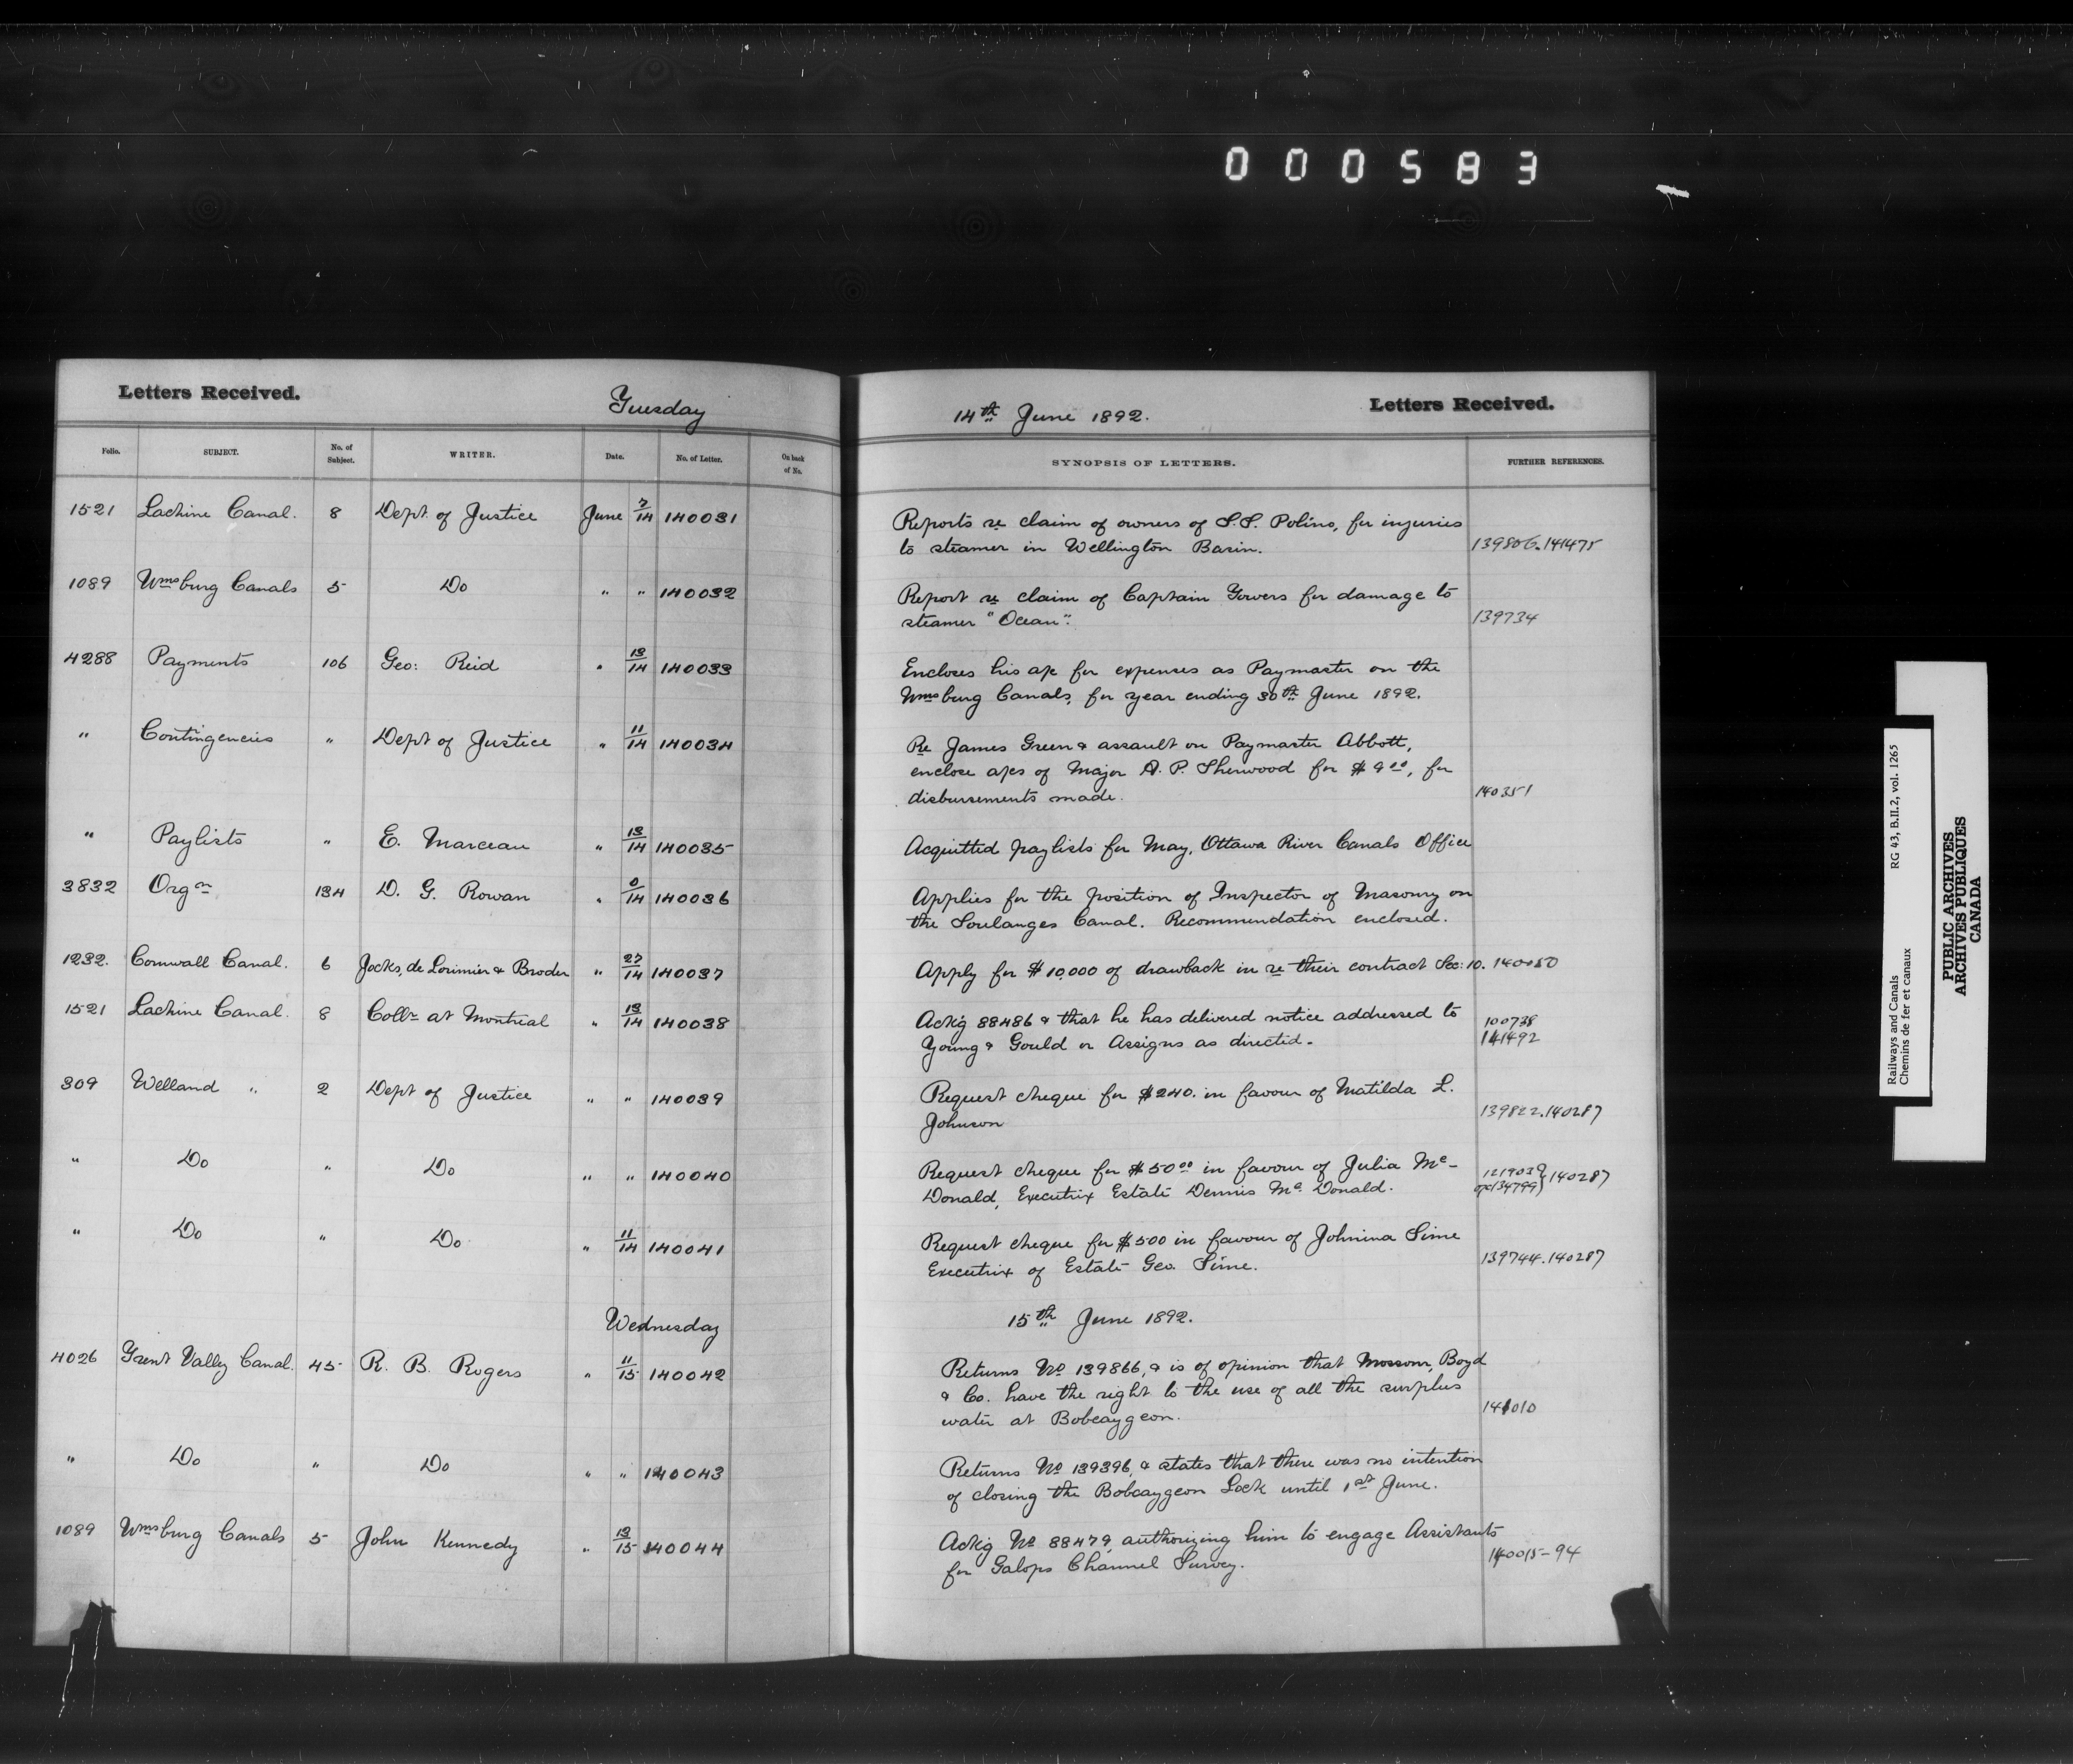 000583
Letters Received.
Tuesday
14th June 1892.
Letters Received.
Folio. SUBJECT. No. of Subject. WRITER. Date. No. of Letter. On back of No. SYNOPSIS OF LETTERS. FURTHER REFERENCES.
1521 Lachine Canal. 8 Dept. of Justice June 7/14 140031 Reports re claim of owners of S.S. Polino, for injuries
to steamer in Wellington Basin. 139806.141475
1089 Wmsburg Canals 5 Do " " 140032 Report re claim of Captain Gowers for damage to
steamer "Ocean". 139734
4288 Payments 106 Geo: Reid " 13/14 140033 Encloses his a/c for expenses as Paymaster on the
Wmsburg Canals, for year ending 30th June 1892.
" Contingencies " Dept of Justice " 11/14 140034 Re James Green & assault on Paymaster Abbott,
enclose a/cs of Major A. P. Sherwood for $9.00, for
disbursements made. 140351
" Paylists " E. Marceau " 13/14 140035 Acquitted paylists for May, Ottawa River Canals Office
3832 Orgn 134 D. G. Rowan " 0/14 140036 Applies for the position of Inspector of Masonry on
the Soulanges Canal. Recommendation enclosed.
1232. Cornwall Canal. 6 Jocks, de Lorimier & Broder " 27/14 140037 Apply for $10,000 of drawback in re their contract Sec: 10. 140050
1521 Lachine Canal. 8 Collr at Montreal " 13/14 140038 Ackg 88486 & that he has delivered notice addressed to 100738
Young & Gould or Assigns as directed. 141492
309 Welland " 2 Dept of Justice " " 140039 Request cheque for $240. in favour of Matilda L.
Johnson 139822.140287
" Do " Do " " 140040 Request cheque for $50.00 in favour of Julia Mc-
Donald, Executrix Estate Dennis Mc.Donald. 140287
" Do " Do " 11/14 140041 Request cheque for $500 in favour of Johnina Sime
Executrix of Estate Geo. Sime. 139744.140287
Wednesday 15th June 1892.
4026 Trent Valley Canal. 45 R. B. Rogers " 11/15 140042 Returns No 139866, & is of opinion that Mossom, Boyd
& Co. have the right to the use of all the surplus
water at Bobcaygeon. 141010
" Do " Do " " 140043 Returns No 139396, & states that there was no intention
of closing the Bobcaygeon Lock until 1st June.
1089 Wmsburg Canals 5 John Kennedy " 13/15 140044 Ackg No 88479, authorizing him to engage Assistants
for Galops Channel Survey. 140015-94
Railways and Canals RG 43, B.II.2, vol. 1265
Chemins de fer et canaux
PUBLIC ARCHIVES
ARCHIVES PUBLIQUES
CANADA